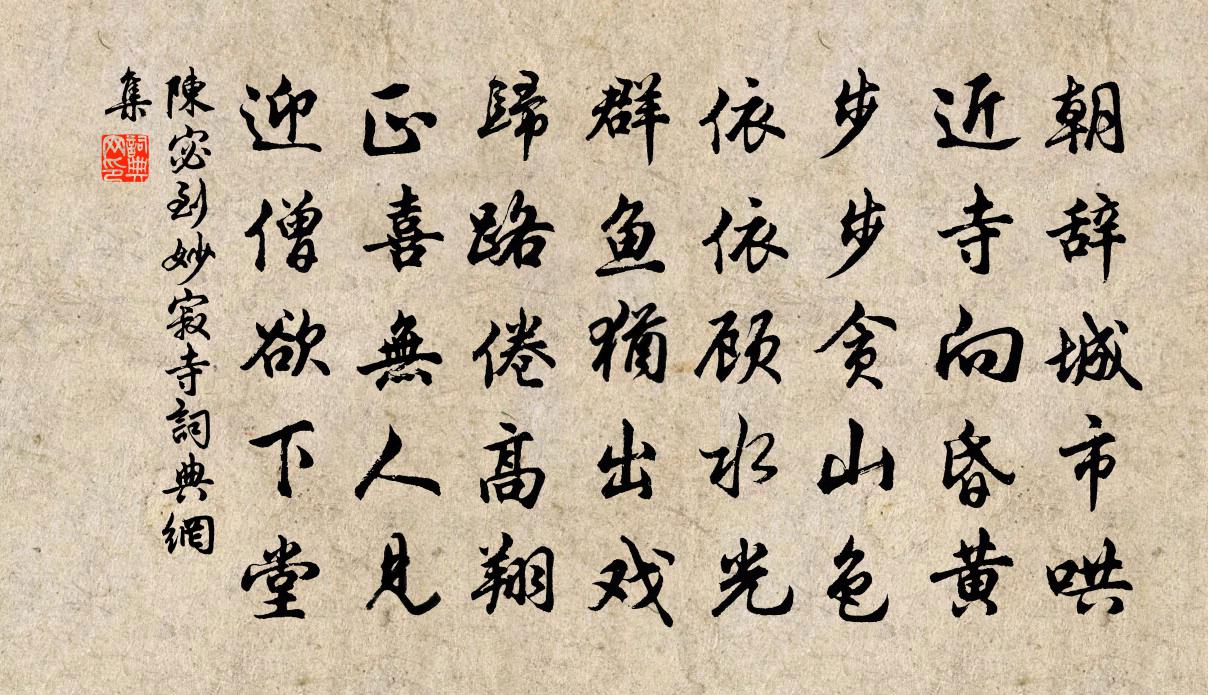 朝辞城市哄
近寺向昏黄
步步贪山色
依依顾水光
群鱼犹出戏
歸路倦高翔
正喜無人見
迎僧欲下堂
陳宓到妙寂寺詞典網
集
詞典
网印